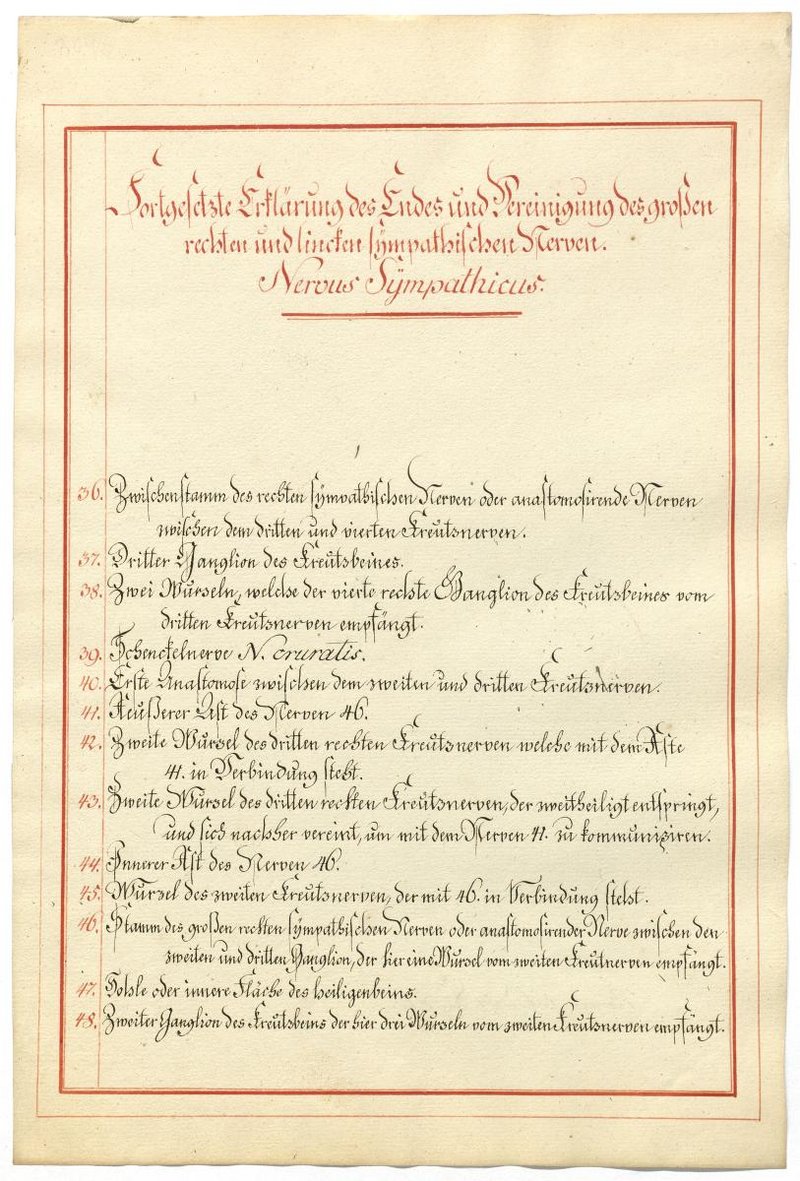 Fortgesetzte Erklärung des Endes und Vereinigung des großen
rechten und lincken sÿmpathischen Nerven.
Nervus Sÿmpathicus.
36. Zwischenstamm des rechten sÿmpathischen Nerven oder anastomosirende Nerven
zwischen dem dritten und vierten Kreutznerven.
37. Dritter Ganglion des Kreutzbeines.
38. Zwei Wurzeln, welche der vierte rechte Ganglion des Kreutzbeines vom
dritten Kreutznerven empfängt.
39. Schenckelnerve N. cruralis.
40. Erste Anastomose zwischen dem zweiten und dritten Kreutznerven.
41. Aeußerer Ast des Nerven 46.
42. Zweite Wurzel des dritten rechten Kreutznerven welche mit dem Aste
41. in Verbindung steht.
43. Zweite Wurzel des dritten rechten Kreutznerven, der zweitheiligt entspringt,
und sich nachher vereint, um mit dem Nerven 41. zu kommuniziren.
44. Innerer Ast des Nerven 46.
45. Wurzel des zweiten Kreutznerven, der mit 46. in Verbindung steht.
46. Stamm des großen rechten sÿmpathischen Nerven oder anastomosirender Nerve zwischen den
zweiten und dritten Ganglion, der hier eine Wurzel vom zweiten Kreutnerven empfängt.
47. Hohle oder innere Fläche des heiligenbeins.
48. Zweiter Ganglion des Kreutzbeins der hier drei Wurzeln vom zweiten Kreutznerven empfängt.